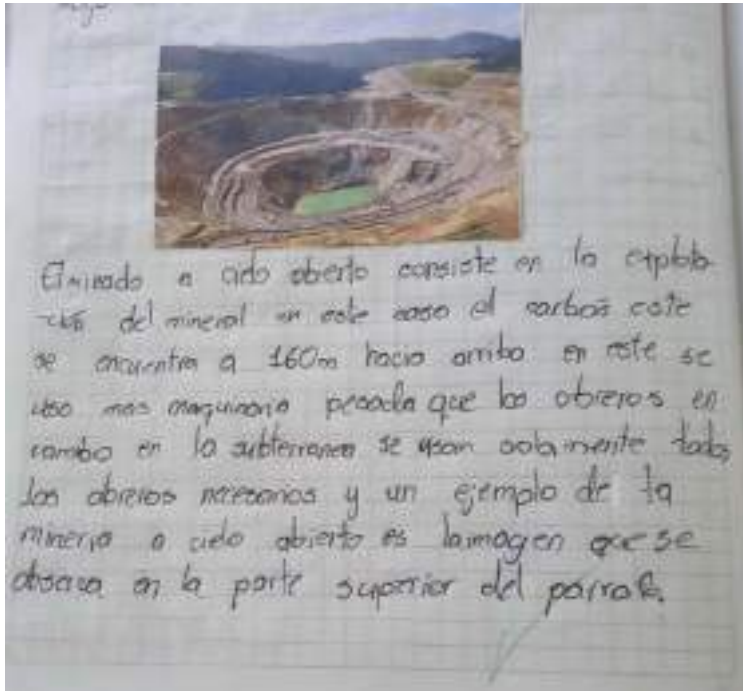 a cielo abierto consiste en la explota
del mineral en este caso el carbon este
se encuentra a 160m hacia arriba en este se
uso mas maquinaria pesada que los obreros en
cambio en la subterranea se usan solamente todos
los obreros necesarios y un ejemplo de la
mineria a cielo abierto es la imagen que se
observa en la parte superior del parrafo.